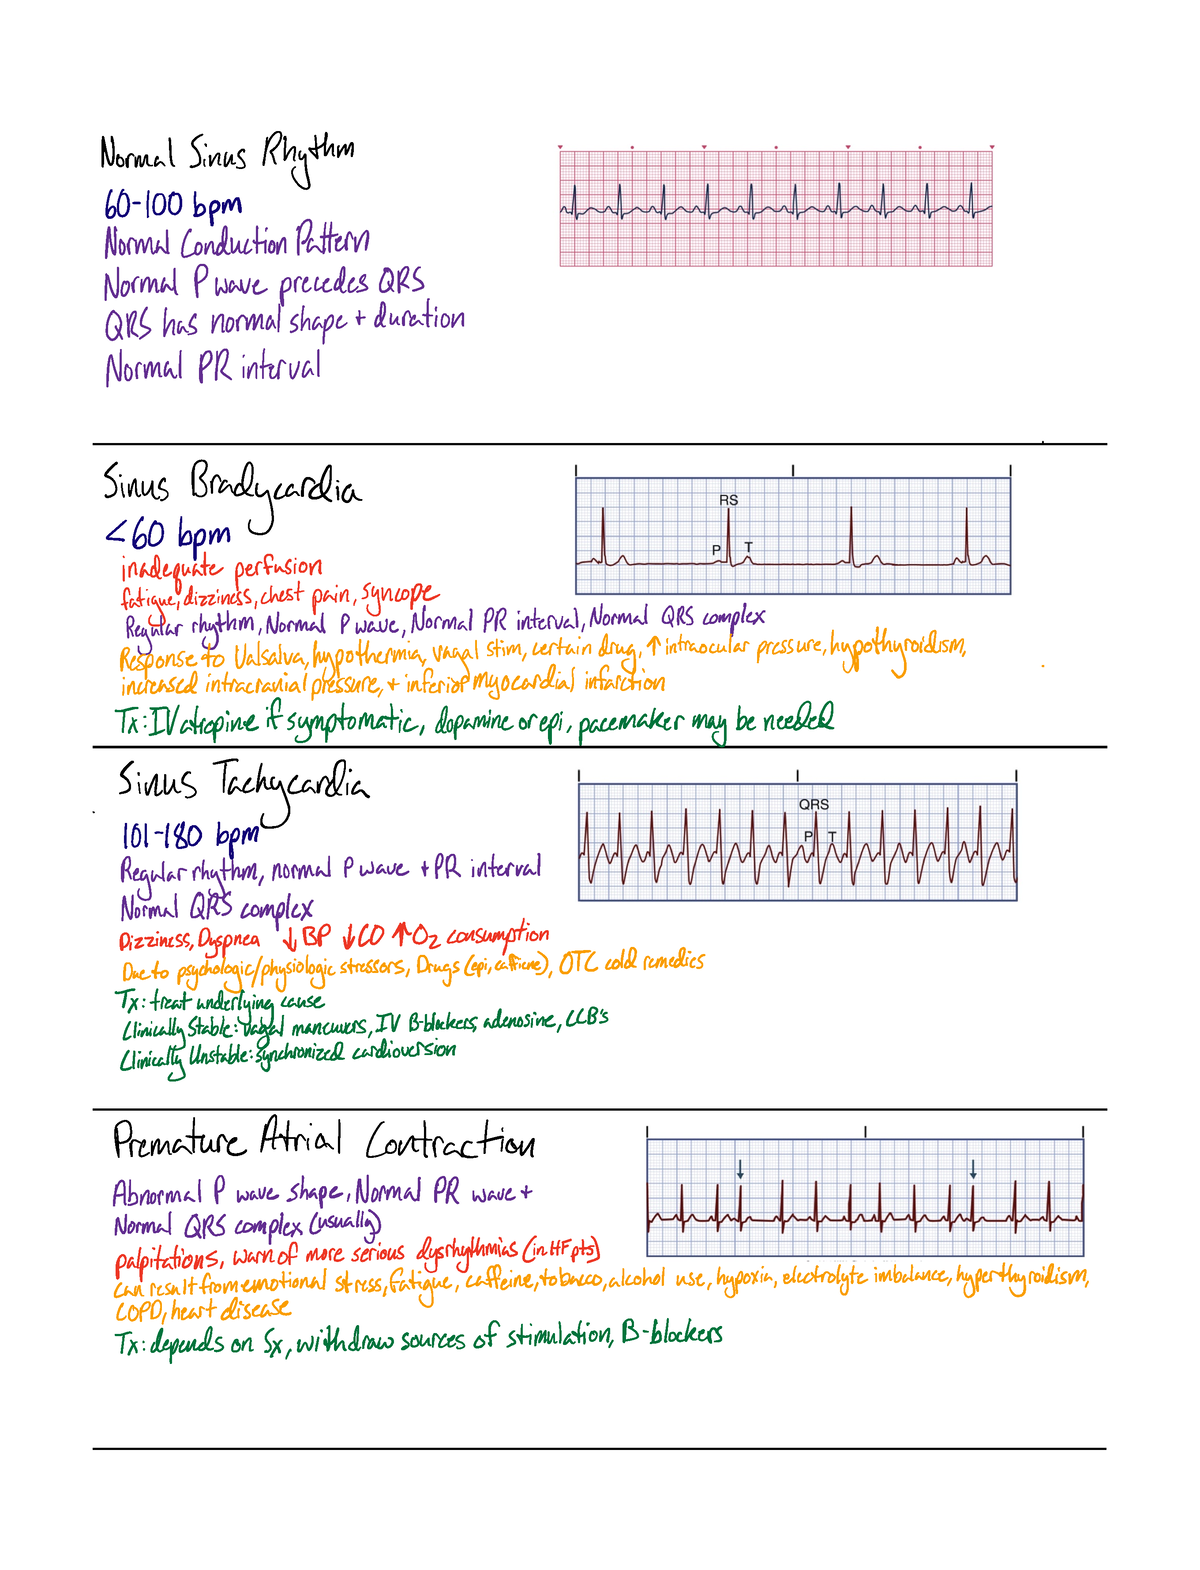 Normal Sinus Rhythm
60-100 bpm
Normal Conduction Pattern
Normal P wave precedes QRS
QRS has normal shape + duration
Normal PR interval
Sinus Bradycardia
<60 bpm
inadequate perfusion
fatigue, dizziness, chest pain, syncope
Regular rhythm, Normal P wave, Normal PR interval, Normal QRS complex
Response to Valsalva, hypothermia, vagal stim, certain drug, ↑ intraocular pressure, hypothyroidism,
increased intracranial pressure, + inferior myocardial infarction
Tx: IV atropine if symptomatic, dopamine or epi, pacemaker may be needed
RS
P T
Sinus Tachycardia
101-180 bpm
Regular rhythm, normal P wave + PR interval
Normal QRS complex
Dizziness, Dyspnea ↓ BP ↓ CO ↑ O2 consumption
Due to psychologic/physiologic stressors, Drugs (epi, caffiene), OTC cold remedies
Tx: treat underlying cause
Clinically Stable: vagal maneuvers, IV B-blockers, adenosine, CCB's
Clinically Unstable: synchronized cardioversion
QRS
P T
Premature Atrial Contraction
Abnormal P wave shape, Normal PR wave +
Normal QRS complex (usually)
palpitations, warn of more serious dysrhythmias (in HF pts)
can result from emotional stress, fatigue, caffeine, tobacco, alcohol use, hypoxia, electrolyte imbalance, hyperthyroidism,
COPD, heart disease
Tx: depends on Sx, withdraw sources of stimulation, B-blockers